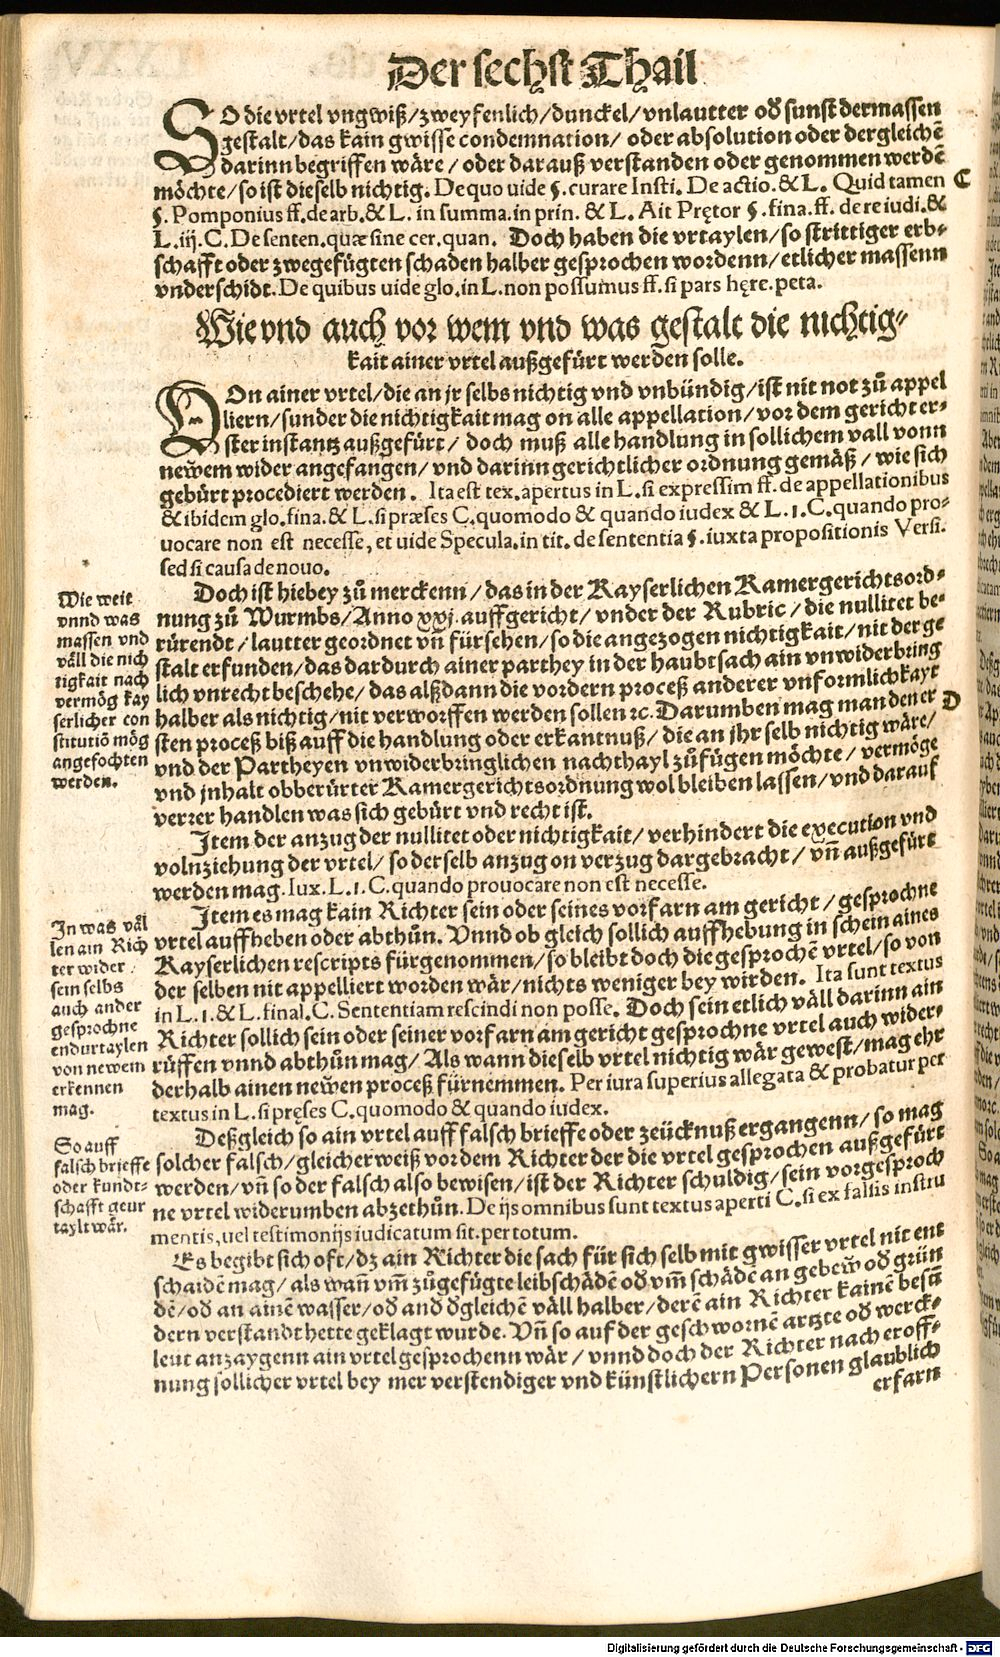 Der sechst Thail
SO die vrtel vngwiß/zweyfenlich/dunckel/vnlautter od̕ sunst dermassen
gestalt/das kain gwisse condemnation/ oder absolution oder dergleichē
darinn begriffen wäre/ oder darauß verstanden oder genommen werdē
möchte/so ist dieselb nichtig. De quo uide §. curare Insti. De actio. & L. Quid tamen C
§. Pomponius ff. de arb. & L. in summa. in prin. & L. Ait Prętor §. fina. ff. de re iudi. &
L. iij. C. De senten. quæ sine cer. quan. Doch haben die vrtaylen/so strittiger erb-
schafft oder zwegefügten schaden halber gesprochen wordenn/etlicher massenn
vnderschidt. De quibus uide glo. in L. non possumus ff. si pars hęre. peta.
Wie vnd auch vor wem vnd was gestalt die nichtig-
kait ainer vrtel außgefürt werden solle.
VOn ainer vrtel/die an jr selbs nichtig vnd vnbündig/ist nit not zů appel
liern/sunder die nichtigkait mag on alle appellation/vor dem gericht er-
ster instantz außgefürt/ doch muß alle handlung in sollichem vall vonn
newem wider angefangen/ vnd darinn gerichtlicher ordnung gemäß/ wie sich
gebürt procediert werden. Ita est tex. apertus in L. si expressim ff. de appellationibus
& ibidem glo. fina. & L. si præses C. quomodo & quando iudex & L. 1. C. quando pro-
uocare non est necesse, et uide Specula. in tit. de sententia §. iuxta propositionis Versi.
sed si causa de nouo.
Wie weit
vnnd was
massen vnd
väll die nich
tigkait nach
vermög kay
serlicher con
stitutiō mög
angefochten
werden.
Doch ist hiebey zů merckenn/das in der Kayserlichen Kamergerichtsord-
nung zů Wurmbs/Anno xxj. auffgericht/ vnder der Rubric/ die nullitet be-
rürendt/lautter geordnet vn̄ fürsehen/so die angezogen nichtigkait/nit der ge
stalt erfunden/das dardurch ainer parthey in der haubtsach ain vnwiderbring
lich vnrecht beschehe/das alßdann die vordern proceß anderer vnformlichkayt
halber als nichtig/nit verworffen werden sollen ꝛc. Darumben mag man den er D
sten proceß biß auff die handlung oder erkantnuß/die an jhr selb nichtig wäre/
vnd der Partheyen vnwiderbringlichen nachthayl zůfügen möchte/ vermöge
vnd jnhalt obberürter Kamergerichtsordnung wol bleiben lassen/vnd darauf
verrer handlen was sich gebürt vnd recht ist.
Item der anzug der nullitet oder nichtigkait/verhindert die execution vnd
volnziehung der vrtel/ so derselb anzug on verzug dargebracht/vn̄ außgefürt
werden mag. Iux. L. 1. C. quando prouocare non est necesse.
In was väl
len ain Rich
ter wider
sein selbs
auch ander
gesprochne
endurtaylen
von newem
erkennen
mag.
Item es mag kain Richter sein oder seines vorfarn am gericht/ gesprochne
vrtel auffheben oder abthůn. Vnnd ob gleich sollich auffhebung in schein aines
Kayserlichen rescripts fürgenommen/so bleibt doch die gesprochē vrtel/so von
der selben nit appelliert worden wär/nichts weniger bey wirden. Ita sunt textus
in L. 1. & L. final. C. Sententiam rescindi non posse. Doch sein etlich väll darinn ain
Richter sollich sein oder seiner vorfarn am gericht gesprochne vrtel auch wider-
rüffen vnnd abthůn mag/ Als wann dieselb vrtel nichtig wär gewest/mag ehr
derhalb ainen newen proceß fürnemmen. Per iura superius allegata & probatur per
textus in L. si pręses C. quomodo & quando iudex.
So auff
falsch brieffe
oder kundt-
schafft geur
taylt wär.
Deßgleich so ain vrtel auff falsch brieffe oder zeücknuß ergangenn/ so mag
solcher falsch/gleicherweiß vor dem Richter der die vrtel gesprochen außgefürt
werden/vn̄ so der falsch also bewisen/ist der Richter schuldig/sein vorgesproch
ne vrtel widerumben abzethůn. De ijs omnibus sunt textus aperti C. si ex falsis instru
mentis, uel testimonijs iudicatum sit. per totum.
Es begibt sich oft/dz ain Richter die sach für sich selb mit gwisser vrtel nit ent
schaidē mag/ als wan̄ vm̄ zůgefügte leibschädē od̕ vm̄ schädē an gebew̄ od̕ grün
dē/od̕ an ainē wasser/od̕ and d̕gleichē väll halber/derē ain Richter kainē besū
dern verstandt hette geklagt wurde. Vn̄ so auf der geschwornē artzte od̕ werck-
leut anzaygenn ain vrtel gesprochenn wär/ vnnd doch der Richter nach eroff-
nung sollicher vrtel bey mer verstendiger vnd künstlichern Personen glaublich
erfarn
Digitalisierung gefördert durch die Deutsche Forschungsgemeinschaft - DFG